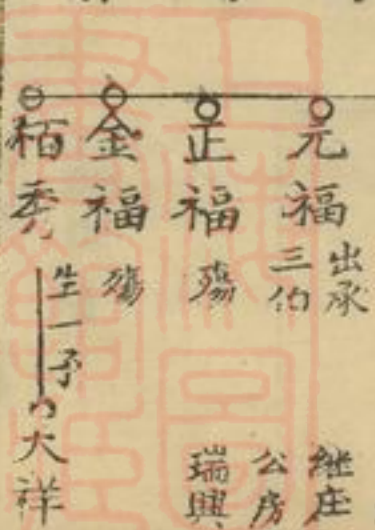 元福
出承
三伯
继庄
公房
正福
殇
瑞興
金福
殇
栢秀
生一子
大祥